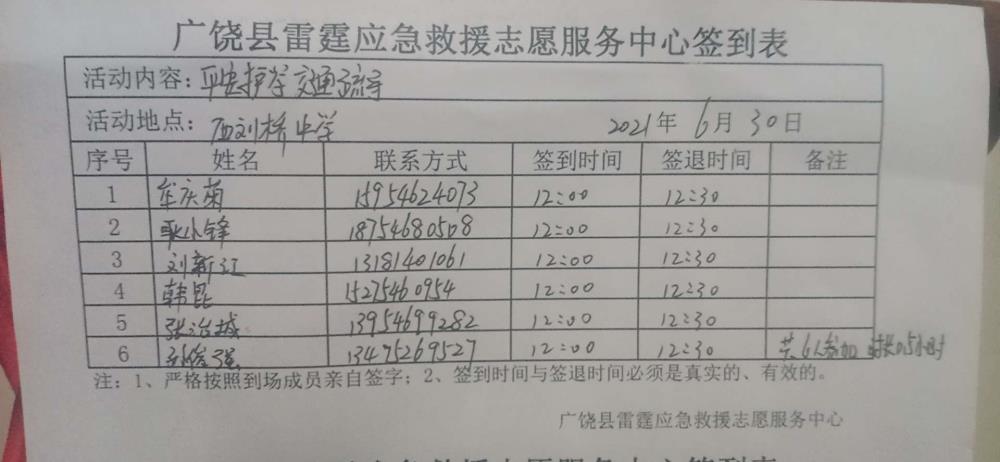 广饶县雷霆应急救援志愿服务中心签到表
活动内容：平安护学 交通疏导
活动地点：西刘桥中学 2021年 6月 30日
序号 姓名 联系方式 签到时间 签退时间 备注
1 牟庆菊 15954624073 12:00 12:30
2 耿小锋 18754680508 12:00 12:30
3 刘新江 13181401061 12:00 12:30
4 韩昆 15275460954 12:00 12:30
5 张治城 13954699282 12:00 12:30
6 13475269527 12:00 12:30 共6人参加 时长0.5小时
注：1、严格按照到场成员亲自签字；2、签到时间与签退时间必须是真实的、有效的。
广饶县雷霆应急救援志愿服务中心